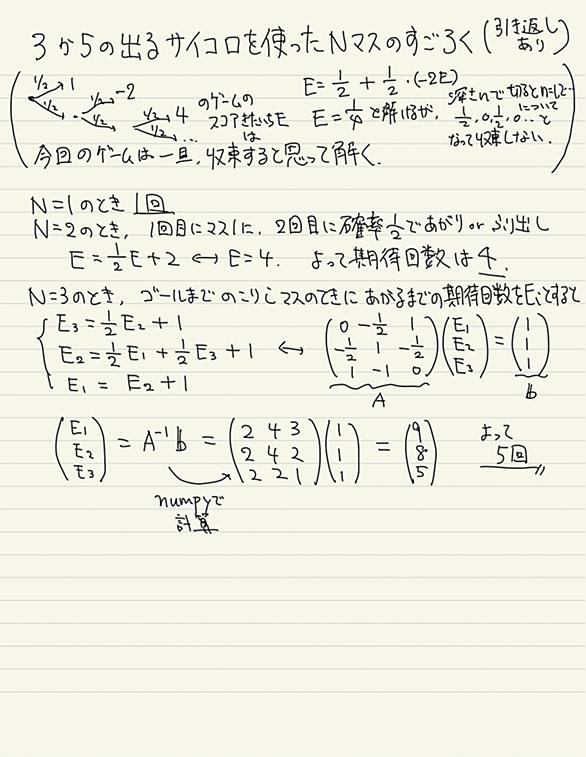 3から5の出るサイコロを使ったNマスのすごろく(引き返しあり)
1/2 1 1/2 -2 1/2 4 1/2 1/2 1/2 ... のゲームのスコア E は
E = 1/2 + 1/2・(-2E)
E = 1/4 と解けるが、深さnで切るとn→∞について 1/2, 0, 1/2, 0… となって収束しない.
今回のゲームは一旦,収束すると思って解く.
N=1のとき 1回
N=2のとき, 1回目にマス1に, 2回目に確率1/2であがり or ふり出し
E = 1/2E + 2 ↔ E = 4. よって期待回数は 4.
N=3のとき, ゴールまでのこりiマスのときにあがるまでの期待回数をEiとすると
E3 = 1/2E2 + 1
E2 = 1/2E1 + 1/2E3 + 1 ↔ (0 -1/2 1 / -1/2 1 -1/2 / 1 -1 0)(E1 E2 E3) = (1 1 1)
E1 = E2 + 1
A b
(E1 E2 E3) = A⁻¹b = (2 4 3 / 2 4 2 / 2 2 1)(1 1 1) = (9 8 5) よって 5回
numpyで
計算